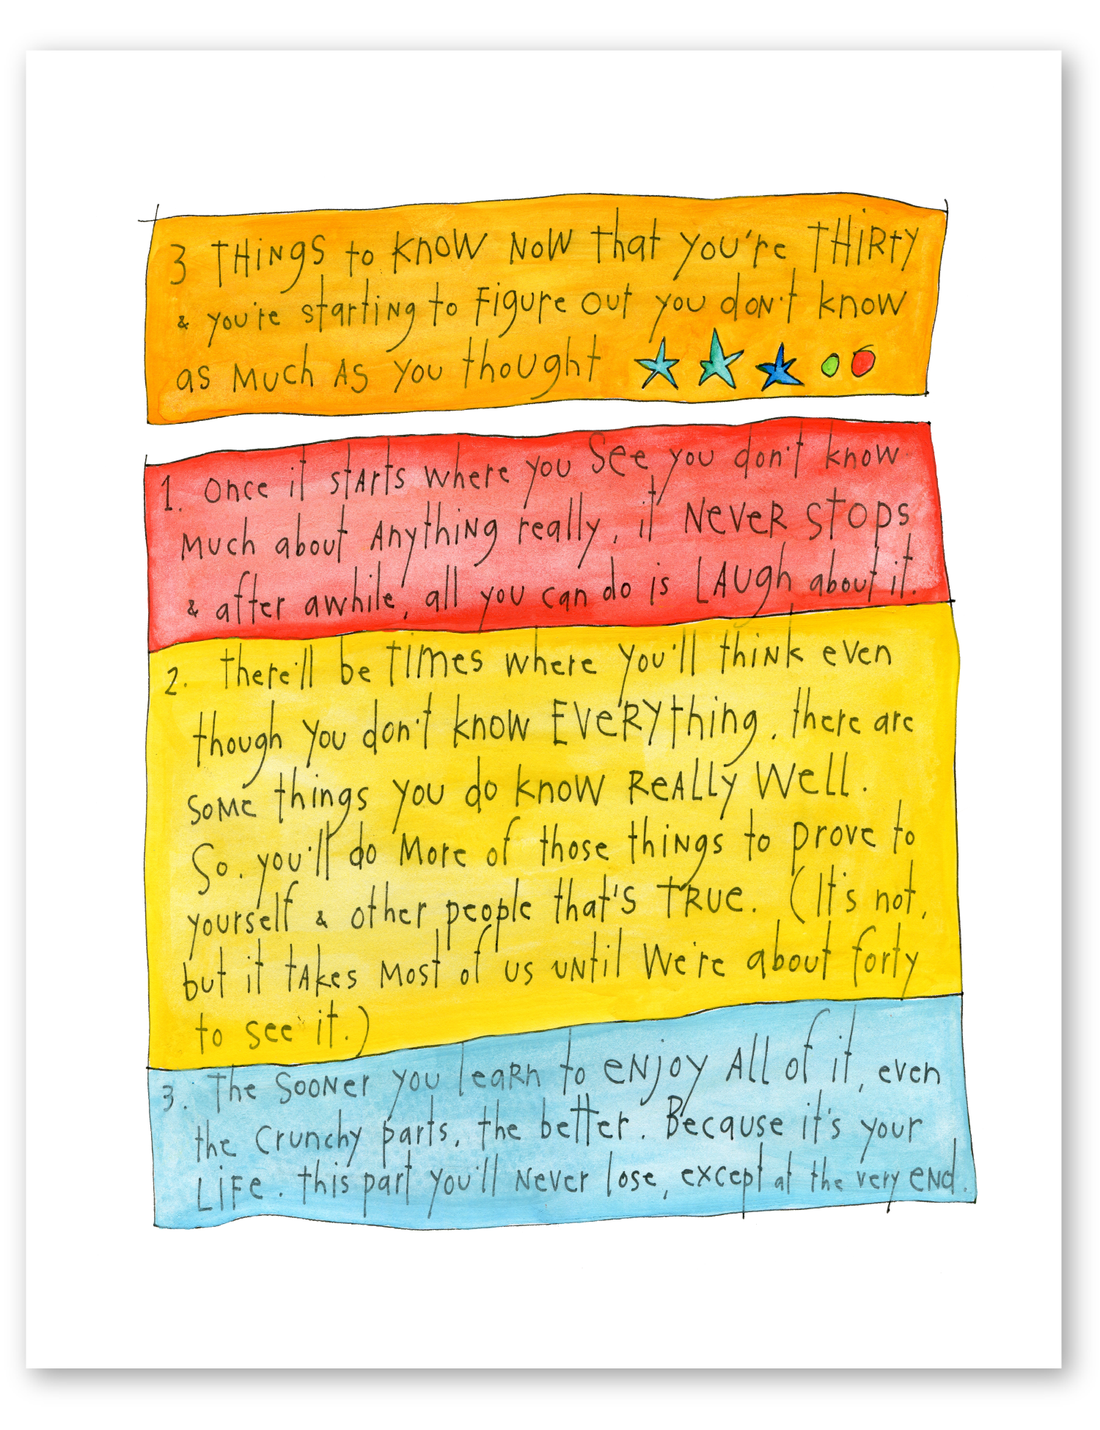 3 THiNgS to KNOW NOW that you're THiRty
& you're startiNg to Figure out you doN't know
as Much AS you thought
1. Once it stARts where you See you don't know
Much about ANythiNg really, it NeVeR StOpS
& after awhile, all you can do is LAUgh about it.
2. there'll be TiMeS where you'll thiNk even
though you don't know EVeRYthing, there are
SOMe things you do know ReALLy Well.
So, you'll do More of those thiNgs to prove to
yourself & other people that's TRUe. (It's not,
but it tAkes Most of us uNtil We're about forty
to see it.)
3. The SOONer you leaRn to eNjOy All of it, even
the Crunchy parts, the better. Because it's your
LiFe. this part you'll Never lose, except at the very eNd.